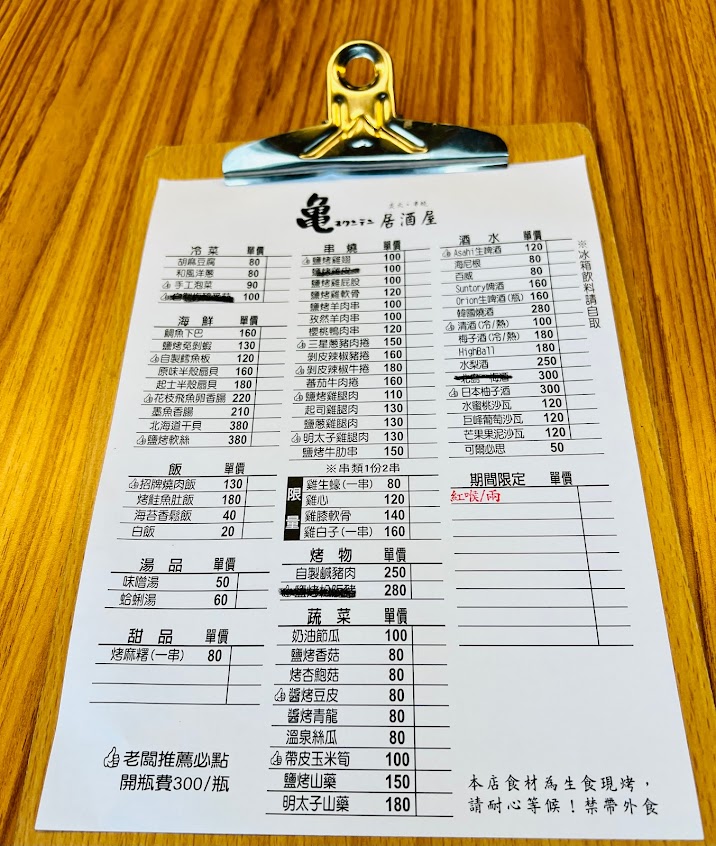 炭火・串燒
亀 オクンテン 居酒屋
冷菜 單價
胡麻豆腐 80
和風洋蔥 80
手工泡菜 90
100
海鮮 單價
鯛魚下巴 160
鹽烤免剝蝦 130
自製鱈魚板 120
原味半殼扇貝 160
起士半殼扇貝 180
花枝飛魚卵香腸 220
墨魚香腸 210
北海道干貝 380
鹽烤軟絲 380
飯 單價
招牌燒肉飯 130
烤鮭魚肚飯 180
海苔香鬆飯 40
白飯 20
湯品 單價
味噌湯 50
蛤蜊湯 60
甜品 單價
烤麻糬(一串) 80
老闆推薦必點
開瓶費300/瓶
串燒 單價
鹽烤雞翅 100
鹽烤雞皮 100
鹽烤雞屁股 100
鹽烤雞軟骨 120
鹽烤羊肉串 100
孜然羊肉串 100
櫻桃鴨肉串 120
三星蔥豬肉捲 150
剝皮辣椒豬捲 160
剝皮辣椒牛捲 180
蕃茄牛肉捲 160
鹽烤雞腿肉 110
起司雞腿肉 130
鹽蔥雞腿肉 130
明太子雞腿肉 130
鹽烤牛肋串 150
※串類1份2串
限量
雞生蠔(一串) 80
雞心 120
雞膝軟骨 140
雞白子(一串) 160
烤物 單價
自製鹹豬肉 250
鹽烤松阪豬 280
蔬菜 單價
奶油節瓜 100
鹽烤香菇 80
烤杏鮑菇 80
醬烤豆皮 80
醬烤青龍 80
溫泉絲瓜 80
帶皮玉米筍 100
鹽烤山藥 150
明太子山藥 180
酒水 單價
Asahi生啤酒 120
海尼根 80
百威 80
Suntory啤酒 160
Orion生啤酒(瓶) 160
韓國燒酒 280
清酒(冷/熱) 100
梅子酒(冷/熱) 180
HighBall 180
水梨酒 250
300
日本柚子酒 300
水蜜桃沙瓦 120
巨峰葡萄沙瓦 120
芒果果泥沙瓦 120
可爾必思 50
※冰箱飲料請自取
期間限定 單價
紅喉/兩
本店食材為生食現烤，
請耐心等候！禁帶外食